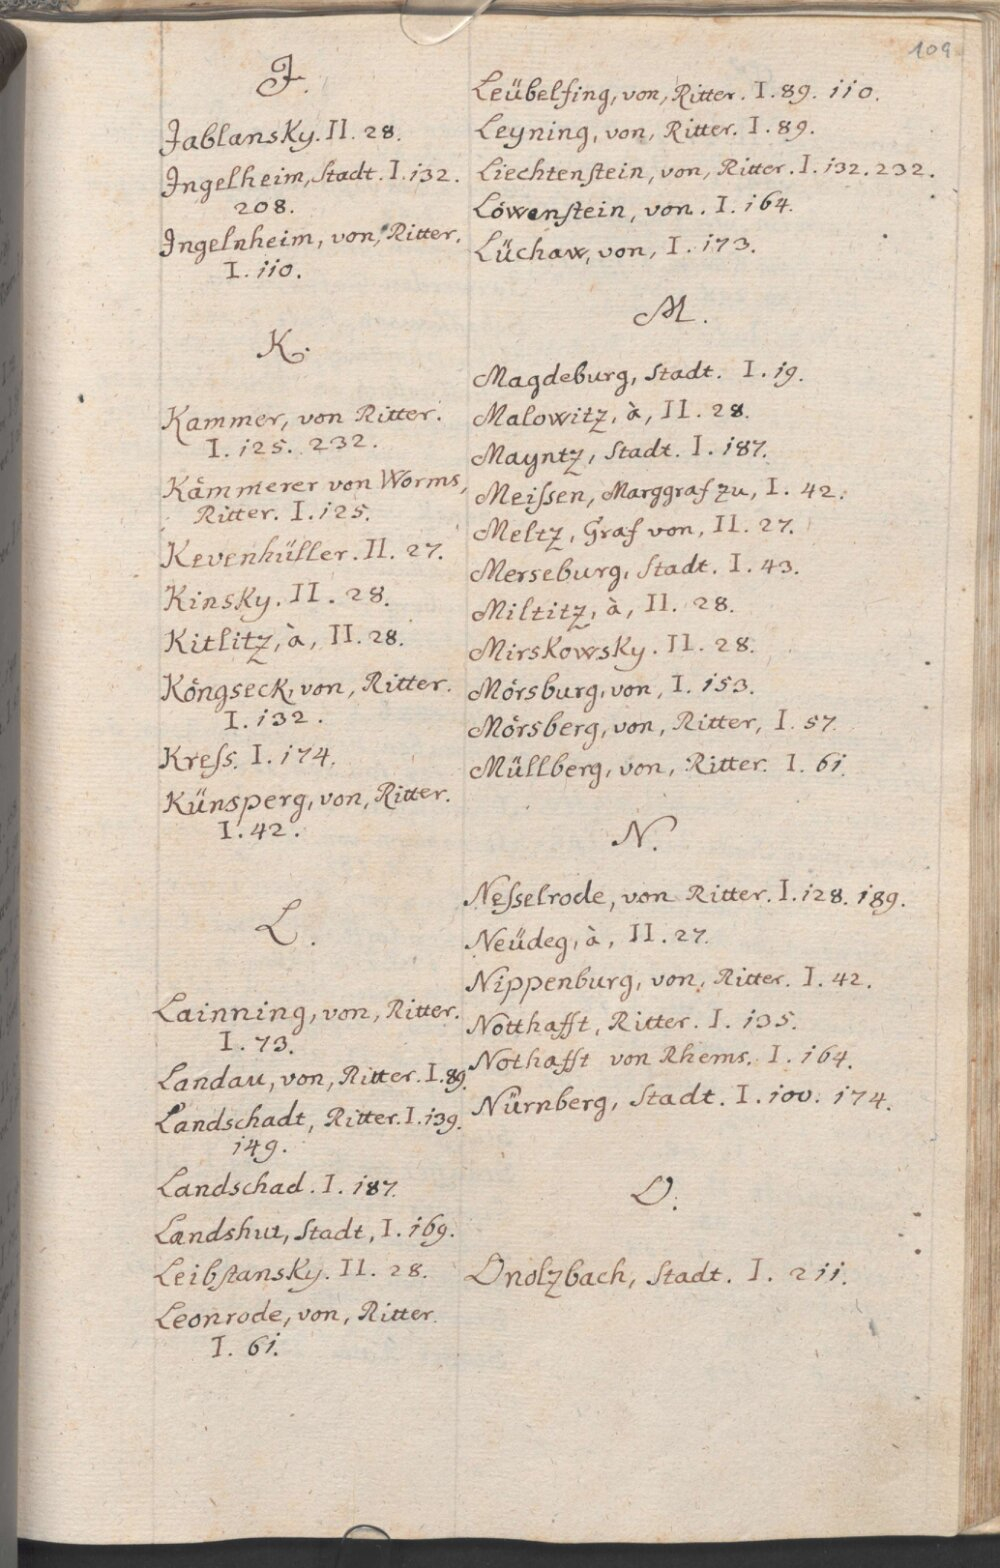 109
J.
JablansKy. II. 28.
Jngelheim, Stadt. I. 132.
208.
Jngelnheim, von, Ritter.
I. 110.
K.
Kammer, von Ritter.
I. 125. 232.
Kämmerer von Worms,
Ritter. I. 125.
Kevenhüller. II. 27.
KinsKy. II. 28.
Kitlitz, à, II. 28.
Köngseck, von, Ritter.
I. 132.
Kreſs. I. 174.
Künsperg, von, Ritter.
I. 42.
L.
Lainning, von, Ritter.
I. 73.
Landau, von, Ritter. I. 89.
Landschadt, Ritter. I. 139.
149.
Landschad. I. 187.
Landshut, Stadt, I. 169.
LeibſtansKy. II. 28.
Leonrode, von, Ritter.
I. 61.
Leübelfing, von, Ritter. I. 89. 110.
Leyning, von, Ritter. I. 89.
Liechtenſtein, von, Ritter. I. 132. 232.
Löwenſtein, von. I. 164.
Lüchaw, von, I. 173.
M.
Magdeburg, Stadt. I. 19.
Malowitz, à, II. 28.
Mayntz, Stadt. I. 187.
Meiſsen, Marggraf zu, I. 42.
Meltz, Graf von, II. 27.
Merseburg, Stadt. I. 43.
Miltitz, à, II. 28.
MirsKowsKy. II. 28.
Mörsburg, von, I. 153.
Mörsberg, von, Ritter, I. 57.
Müllberg, von, Ritter. I. 61.
N.
Neſselrode, von Ritter. I. 128. 189.
Neüdeg, à, II. 27.
Nippenburg, von, Ritter. I. 42.
Notthafft, Ritter. I. 135.
Nothafft von Rhems. I. 164.
Nürnberg, Stadt. I. 100. 174.
O.
Onolzbach, Stadt. I. 211.